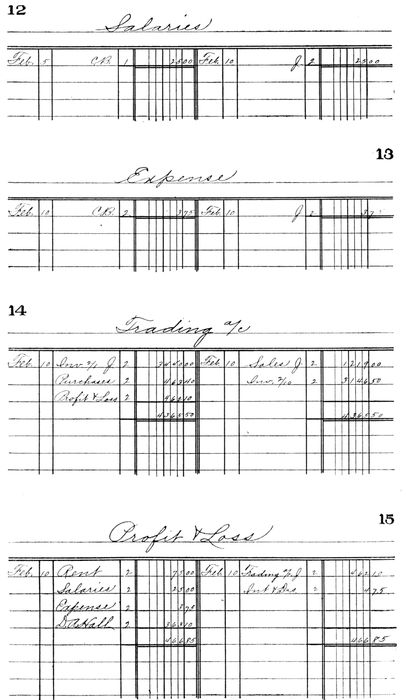 12
Salaries
Feb. 5 C.B. 1 25 00 Feb. 10 J 2 25 00
13
Expense
Feb. 10 C.B. 2 3 75 Feb. 10 J 2 3 75
14
Trading a/c
Feb. 10 Inv. 2/1 J 2 3440 00 Feb. 10 Sales J 2 1219 00
Purchases 2 463 40 Inv. 2/10 2 3146 50
Profit & Loss 2 462 10
4365 50 4365 50
15
Profit & Loss
Feb. 10 Rent 2 75 00 Feb. 10 Trading a/c J 2 462 10
Salaries 2 25 00 Int & Dis 2 4 75
Expense 2 3 75
Hall 2 363 10
466 85 466 85